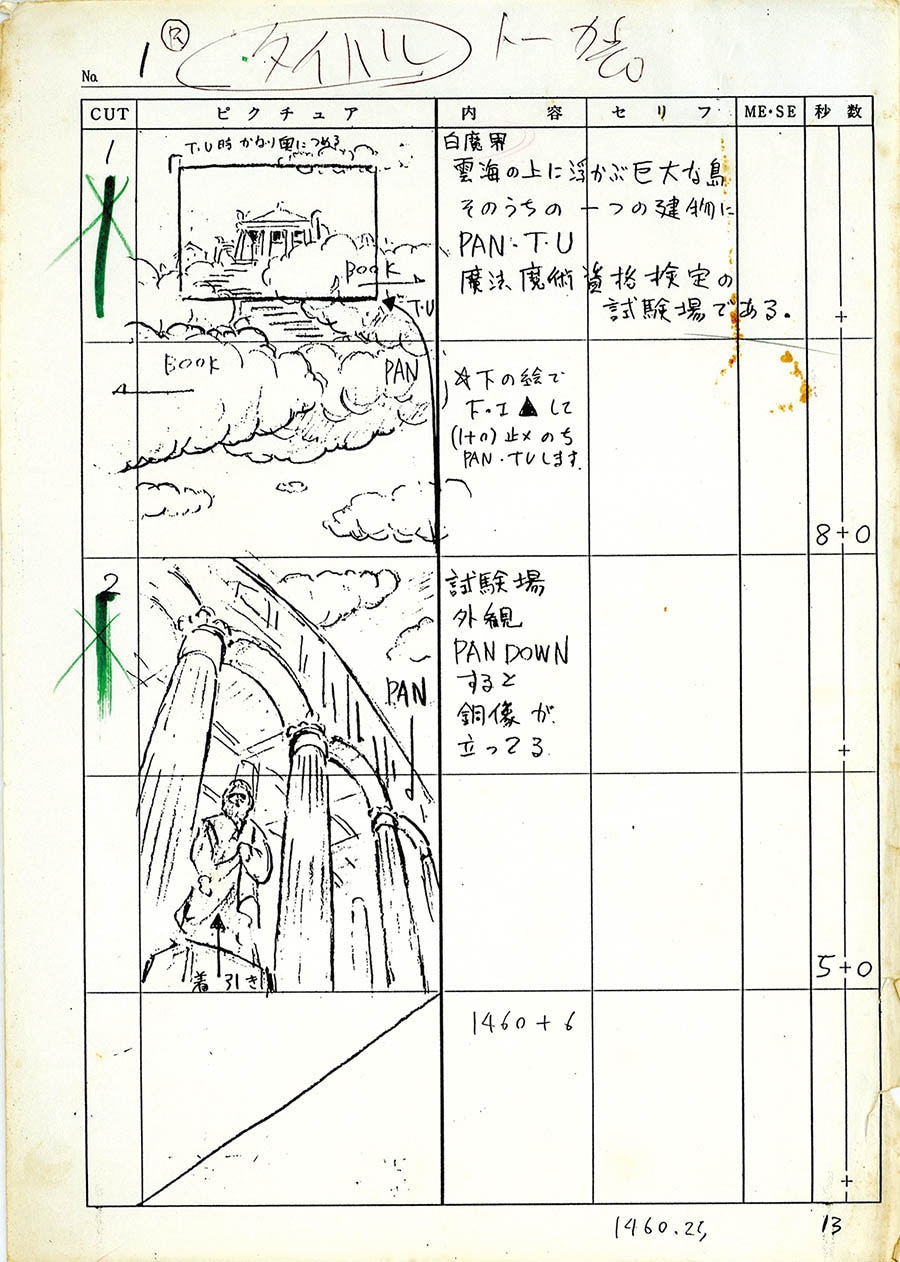 No. 1 R タイハル
CUT ピクチュア 内容 セリフ ME・SE 秒数
1
T.U時 かなり奥につめる
BOOK
T.U
BOOK
PAN
白魔界
雲海の上に浮かぶ巨大な島
そのうちの一つの建物に
PAN・T・U
魔法魔術資格検定の
試験場である。
+
☆下の絵で
下・エ▲して
(1+0)止メのち
PAN・TUします
8+0
2
PAN
着 引き
試験場
外観
PAN DOWN
すると
銅像が
立ってる
+
5+0
1460+6
+
1460.25
13